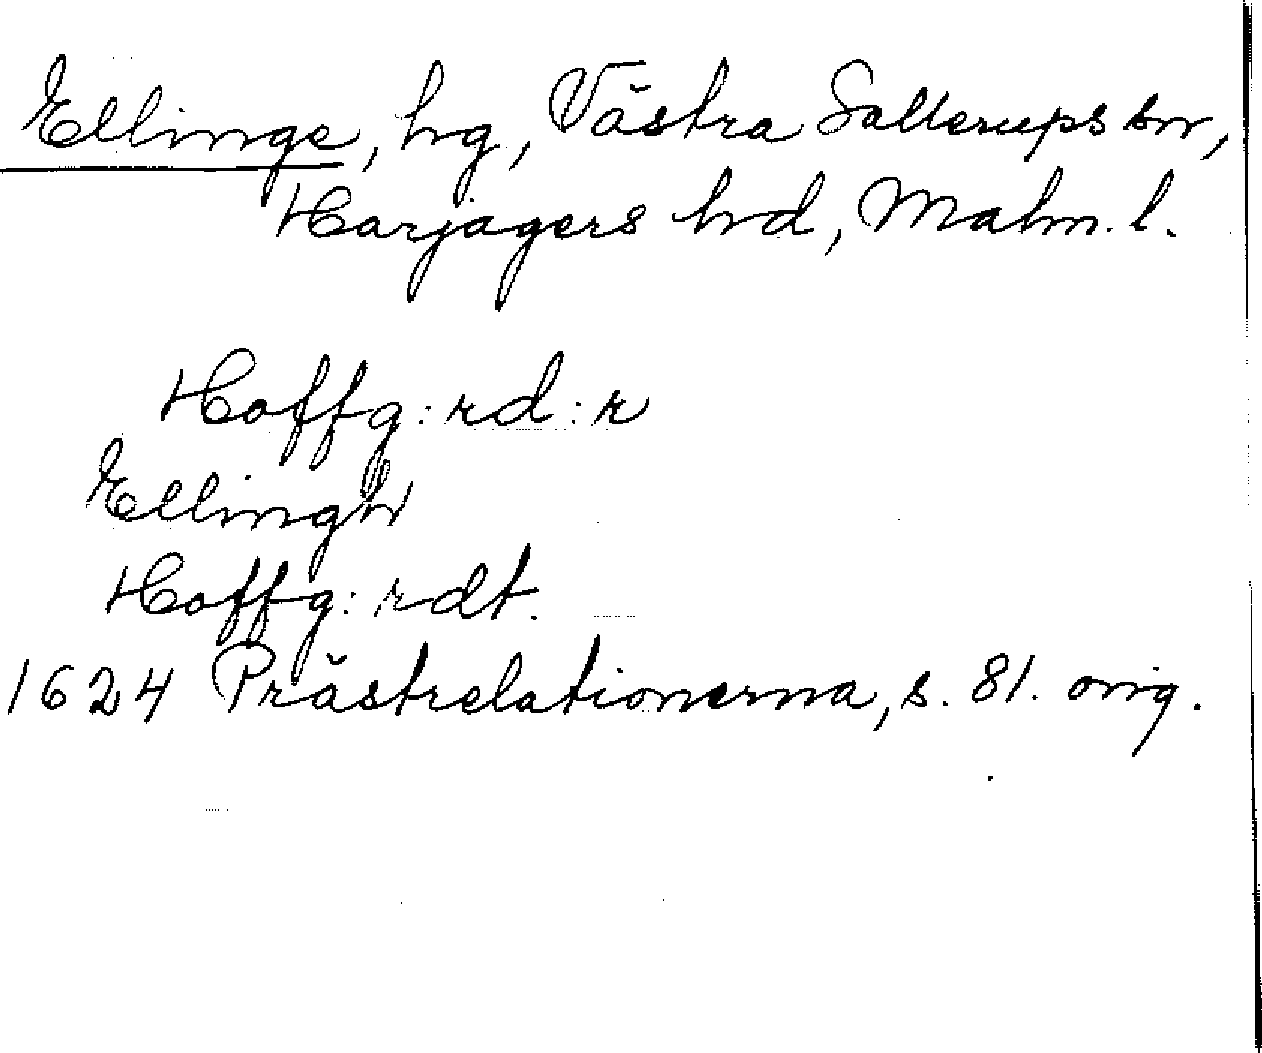 Ellinge, hg, Västra Sallerups sn,
Harjagers hd, Malm. l.
Hoffg:rd:r
Ellingh
Hoffg:rdt.
1624 Prästrelationerna, s. 81. orig.